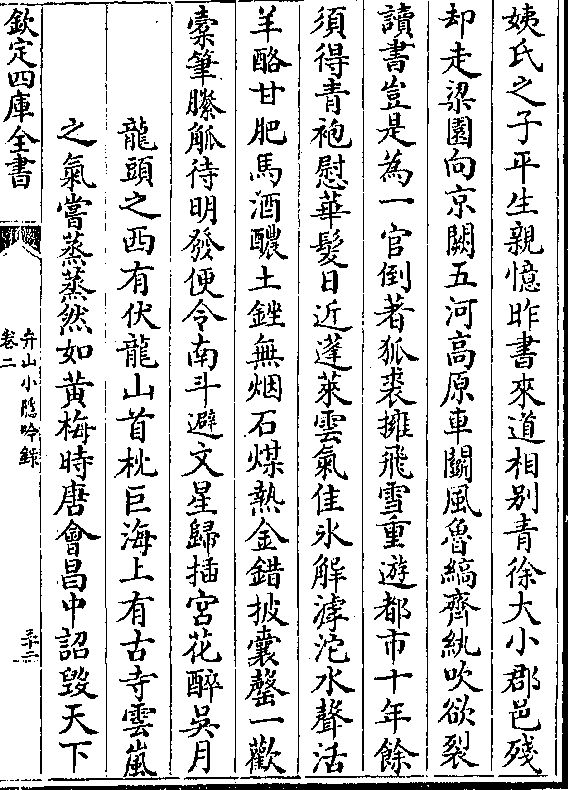 姨氏之子平生親憶昨書來道相别青徐大小郡邑殘
却走梁園向京闕五河高原車鬭風魯縞齊紈吹欲裂
讀書豈是為一官倒著狐裘擁飛雪重遊都市十年餘
須得青袍慰華髮日近蓬萊雲氣佳氷解滹沱水聲活
羊酪甘肥馬酒醲土銼無烟石煤熱金錯披囊罄一歡
橐筆縢觚待明發便令南斗避文星歸插宮花醉吳月
龍頭之西有伏龍山首枕巨海上有古寺雲嵐
之氣嘗蒸蒸然如黄梅時唐會昌中詔毁天下
欽定四庫全書
弁山小隠吟録
卷二